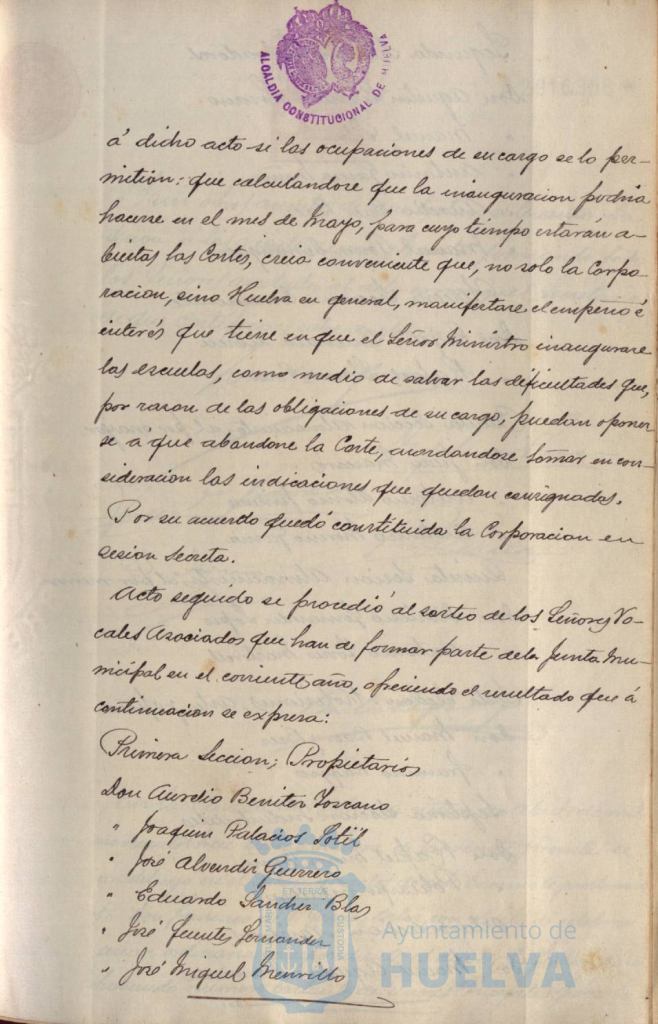 ALCALDIA CONSTITUCIONAL DE HUELVA
á dicho acto si las ocupaciones de su cargo se lo per-
mitian: que calculandose que la inauguracion podria
hacerse en el mes de Mayo, para cuyo tiempo estarán a-
biertas las Cortes, creia conveniente que, no solo la Corpo-
racion, sino Huelva en general, manifestare el empeño é
interés que tiene en que el Señor Ministro inaugurare
las escuelas, como medio de salvar las dificultades que,
por razon de las obligaciones de su cargo, puedan oponer-
se á que abandone la Corte, acordandose tomar en con-
sideracion las indicaciones que quedan consignadas.
Por su acuerdo quedó constituida la Corporacion en
sesion secreta.
Acto seguido se procedió al sorteo de los Señores Vo-
cales Asociados que han de formar parte de la Junta Mu-
nicipal en el corriente año, ofreciendo el resultado que á
continuacion se expresa:
Primera Seccion; Propietarios
Don Aurelio Benitez Toscano
" Joaquin Palacios
" José Guerrero
" Eduardo Sanchez Blas
" José Fuentes Fernandez
" José Miguel
Ayuntamiento de
HUELVA